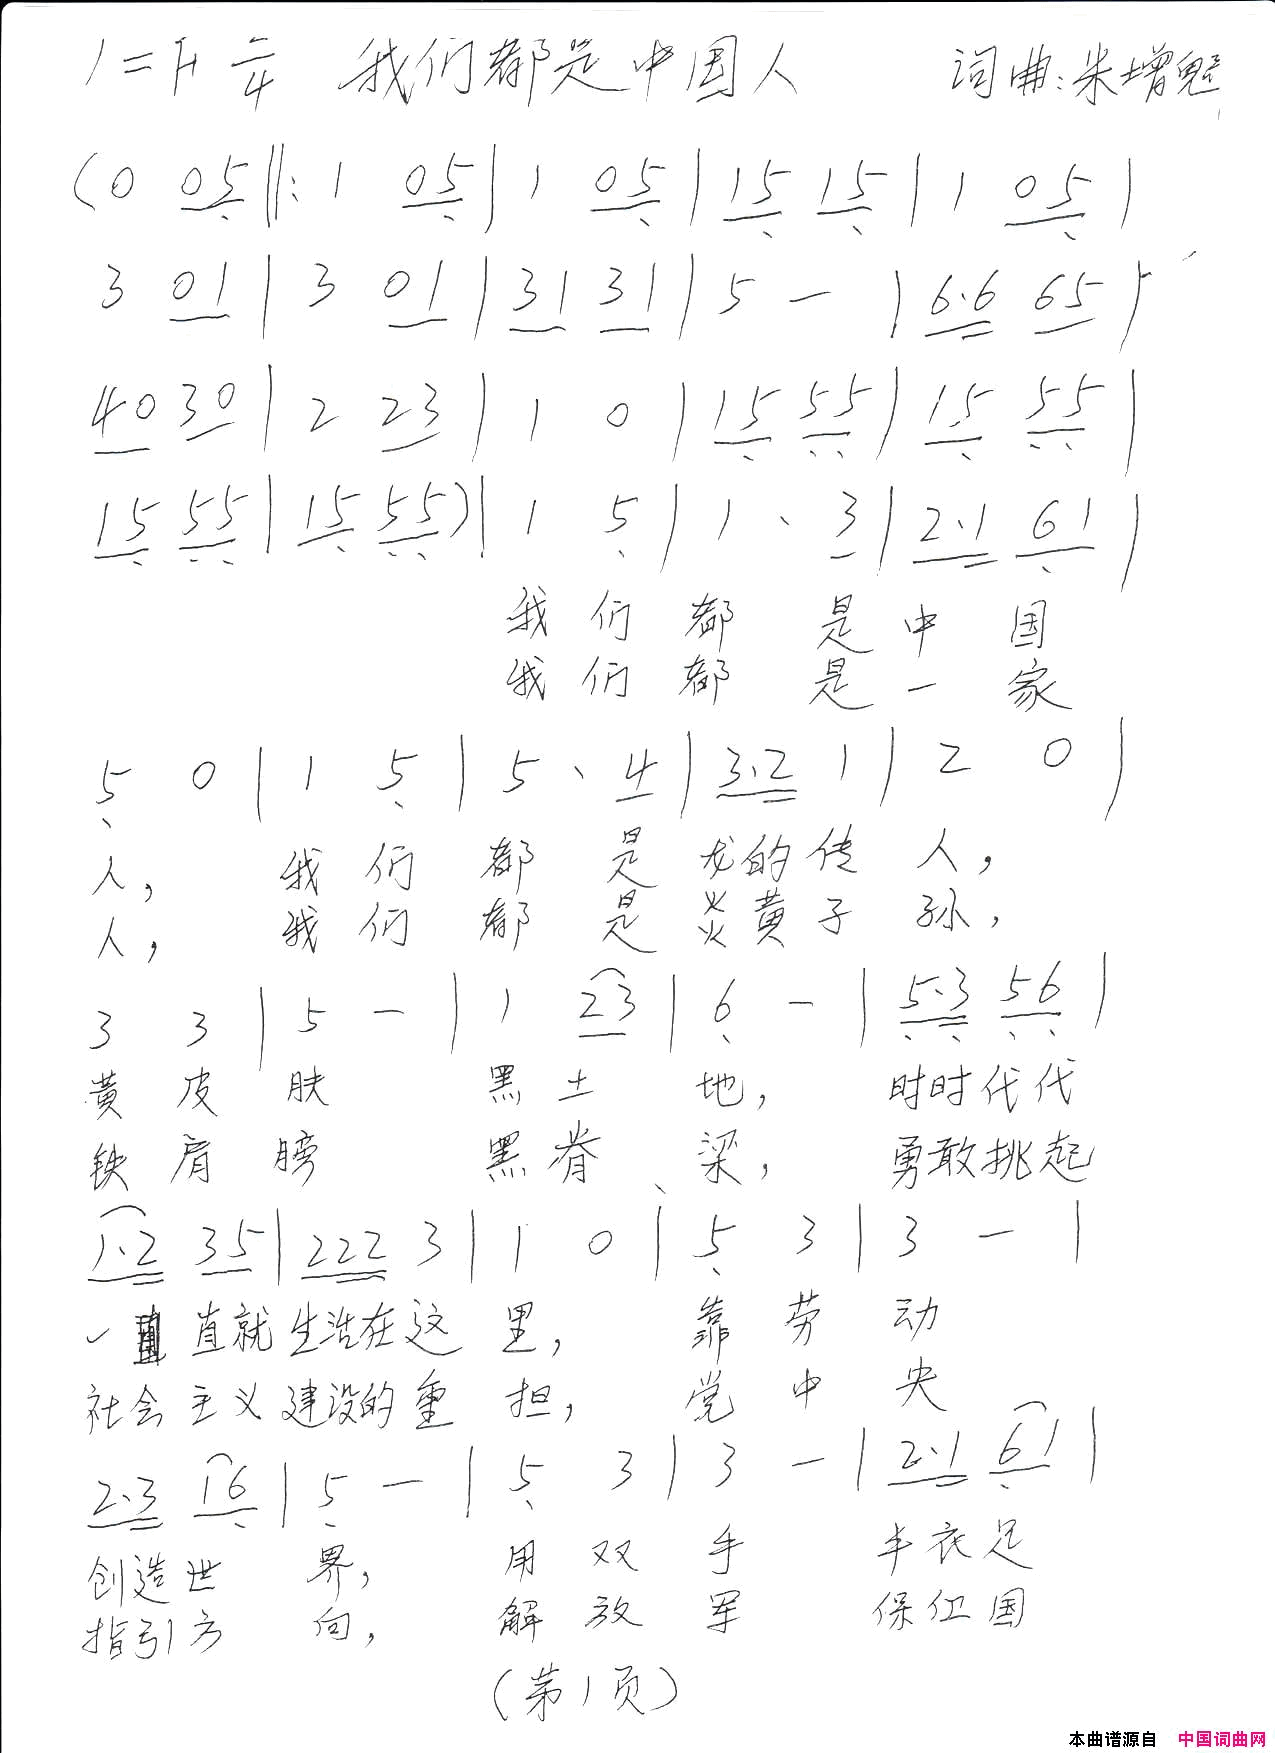 1=F 2/4 我们都是中国人 词曲:朱增魁
(0 05‖:1 05|1 05|15 15|1 05|
3 01|3 01|31 31|5 —|6·6 65|
40 30|2 23|1 0|15 55|15 55|
15 55|15 55)|1 5|1· 3|2·1 61|
我们都是中国
我们都是一家
5 0|1 5|5· 4|3·2 1|2 0|
人, 我们都是龙的传人,
人, 我们都是炎黄子孙,
3 3|5 —|1 23|6 —|5·3 56|
黄皮肤 黑土地, 时时代代
铁肩膀 黑脊梁, 勇敢挑起
1·2 35|222 3|1 0|5 3|3 —|
一直就生活在这里, 靠劳动
社会主义建设的重担, 党中央
2·3 16|5 —|5 3|3 —|2·1 61|
创造世界, 用双手 丰衣足
指引方向, 解放军 保卫国
(第1页)
本曲谱源自 中国词曲网